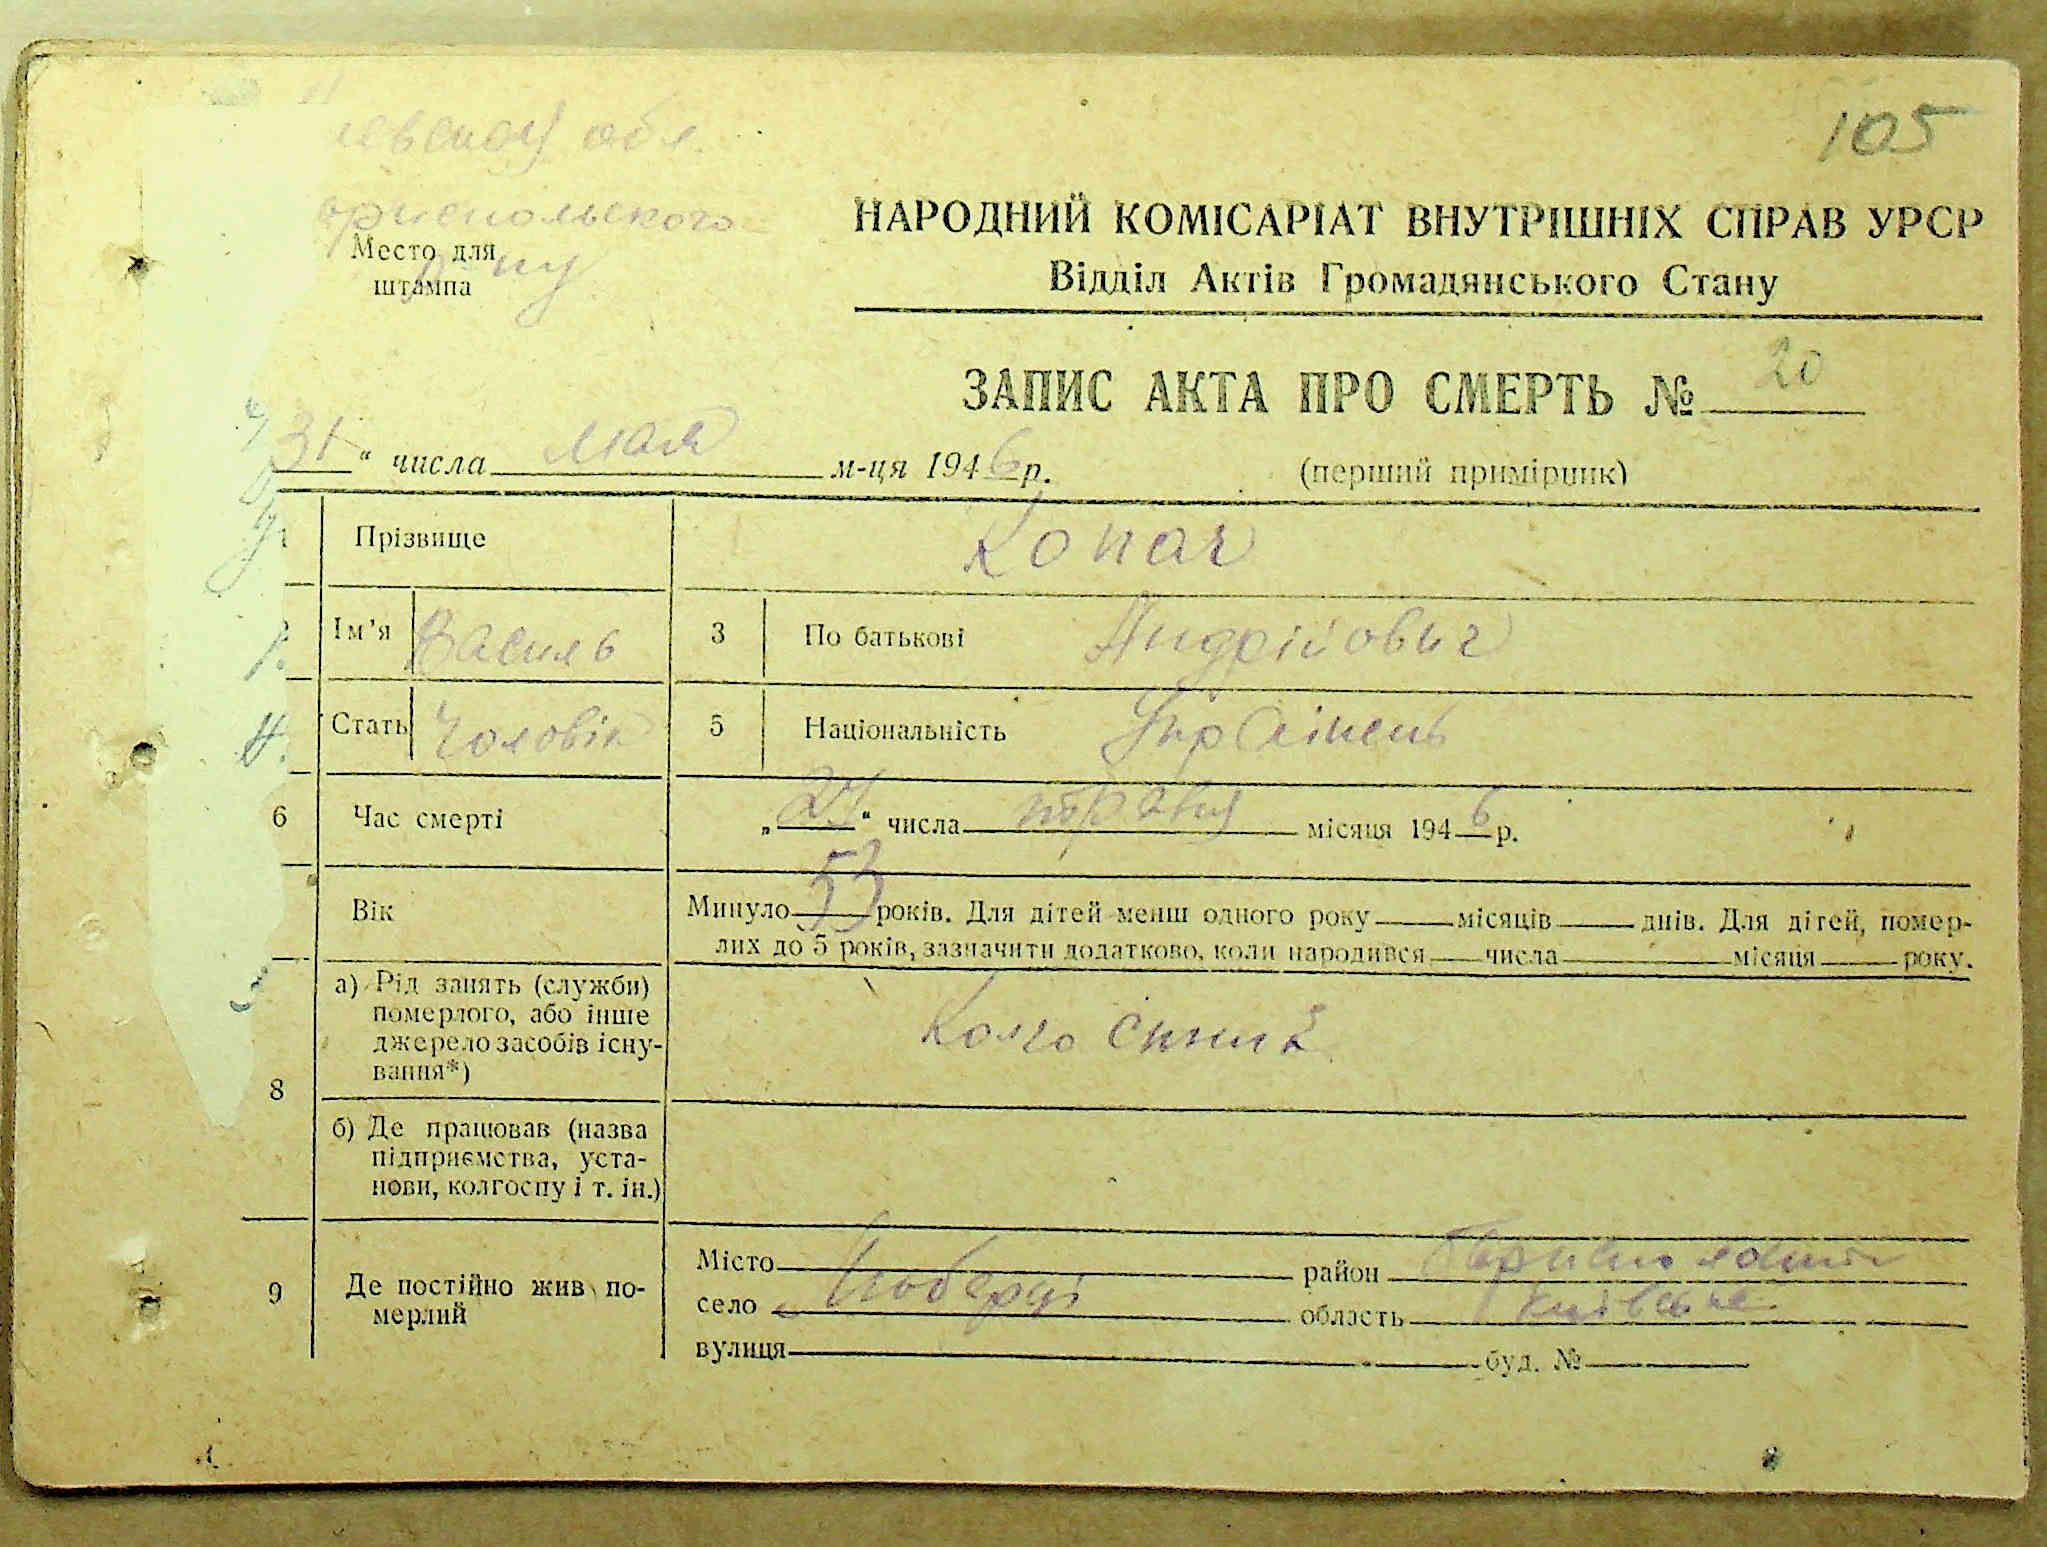 105
обл.
Место для
штампа
НАРОДНИЙ КОМІСАРІАТ ВНУТРІШНІХ СПРАВ УРСР
Відділ Актів Громадянського Стану
ЗАПИС АКТА ПРО СМЕРТЬ № 20
31 " числа мая м-ця 1946 р. (перший примірник)
Прізвище Копач
Ім'я Василь 3 По батькові Андрійович
Стать Чоловік 5 Національність Українець
6 Час смерті „27" числа травня місяця 1946 р.
Вік Минуло 53 років. Для дітей менш одного року місяців днів. Для дітей, помер-
лих до 5 років, зазначити додатково, коли народився числа місяця року.
8 а) Рід занять (служби)
померлого, або інше
джерело засобів існу-
вання*)
б) Де працював (назва
підприємства, уста-
нови, колгоспу і т. ін.)
9 Де постійно жив по-
мерлий
Місто район
село область Київська
вулиця буд. №